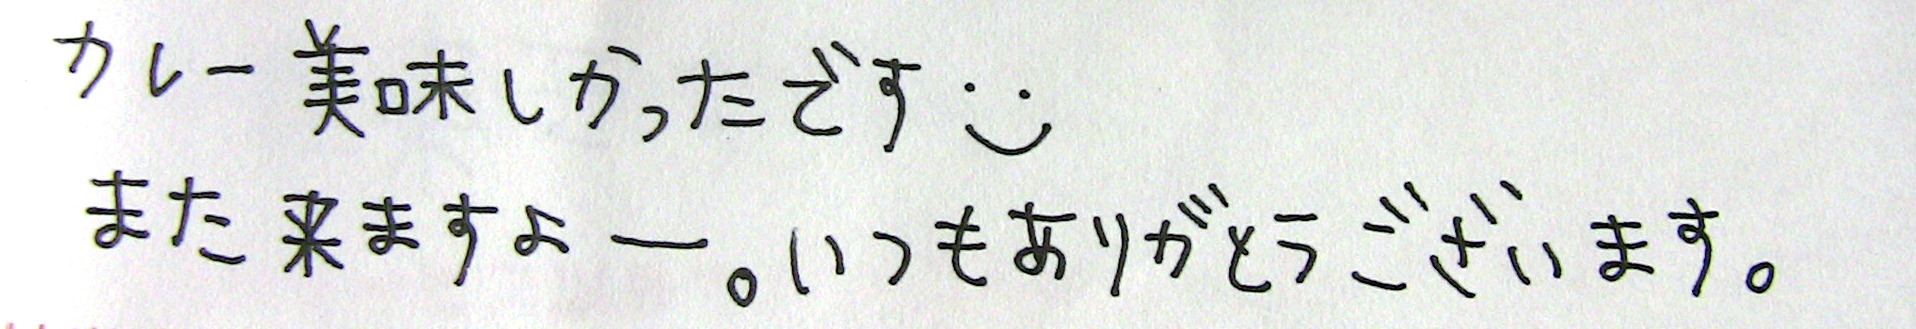 カレー美味しかったです
また来ますよー。いつもありがとうございます。